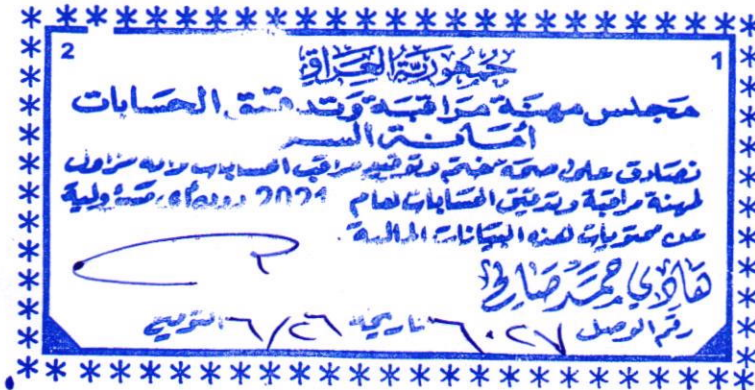 2 1
جمهورية العراق
مجلس مهنة مراقبة وتدقيق الحسابات
أمانة السر
نصادق على صحة ختم وتوقيع مراقب الحسابات لانه مزاول
لمهنة مراقبة وتدقيق الحسابات لعام 2021 دون أي مسؤولية
عن محتويات هذه البيانات المالية.
هادي حمد صالح
رقم الوصل ٦٠٢٧ تاريخه ٦/٢٦ التوقيع